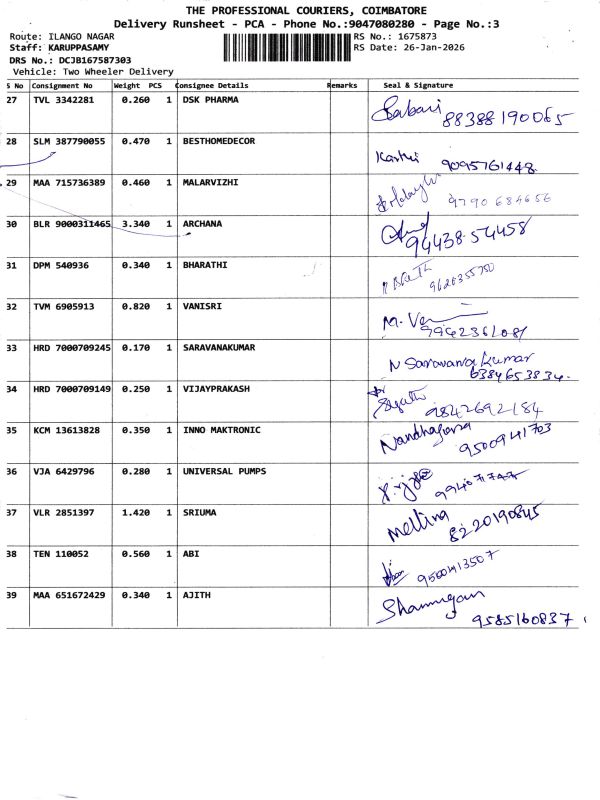 THE PROFESSIONAL COURIERS, COIMBATORE
Delivery Runsheet - PCA - Phone No.:9047080280 - Page No.:3
Route: ILANGO NAGAR RS No.: 1675873
Staff: KARUPPASAMY RS Date: 26-Jan-2026
DRS No.: DCJB167587303
Vehicle: Two Wheeler Delivery
S No Consignment No Weight PCS Consignee Details Remarks Seal & Signature
27 TVL 3342281 0.260 1 DSK PHARMA Sabari 88388190065
28 SLM 387790055 0.470 1 BESTHOMEDECOR
9095761448
29 MAA 715736389 0.460 1 MALARVIZHI 9790684656
30 BLR 9000311465 3.340 1 ARCHANA
94438 54458
31 DPM 540936 0.340 1 BHARATHI
32 TVM 6905913 0.820 1 VANISRI
33 HRD 7000709245 0.170 1 SARAVANAKUMAR N Saravana Kumar
6384653834.
34 HRD 7000709149 0.250 1 VIJAYPRAKASH 9842692184
35 KCM 13613828 0.350 1 INNO MAKTRONIC
9500941703
36 VJA 6429796 0.280 1 UNIVERSAL PUMPS
37 VLR 2851397 1.420 1 SRIUMA Mellina
8220190845
38 TEN 110052 0.560 1 ABI 9500413507
39 MAA 651672429 0.340 1 AJITH Shanmugam
9585160837